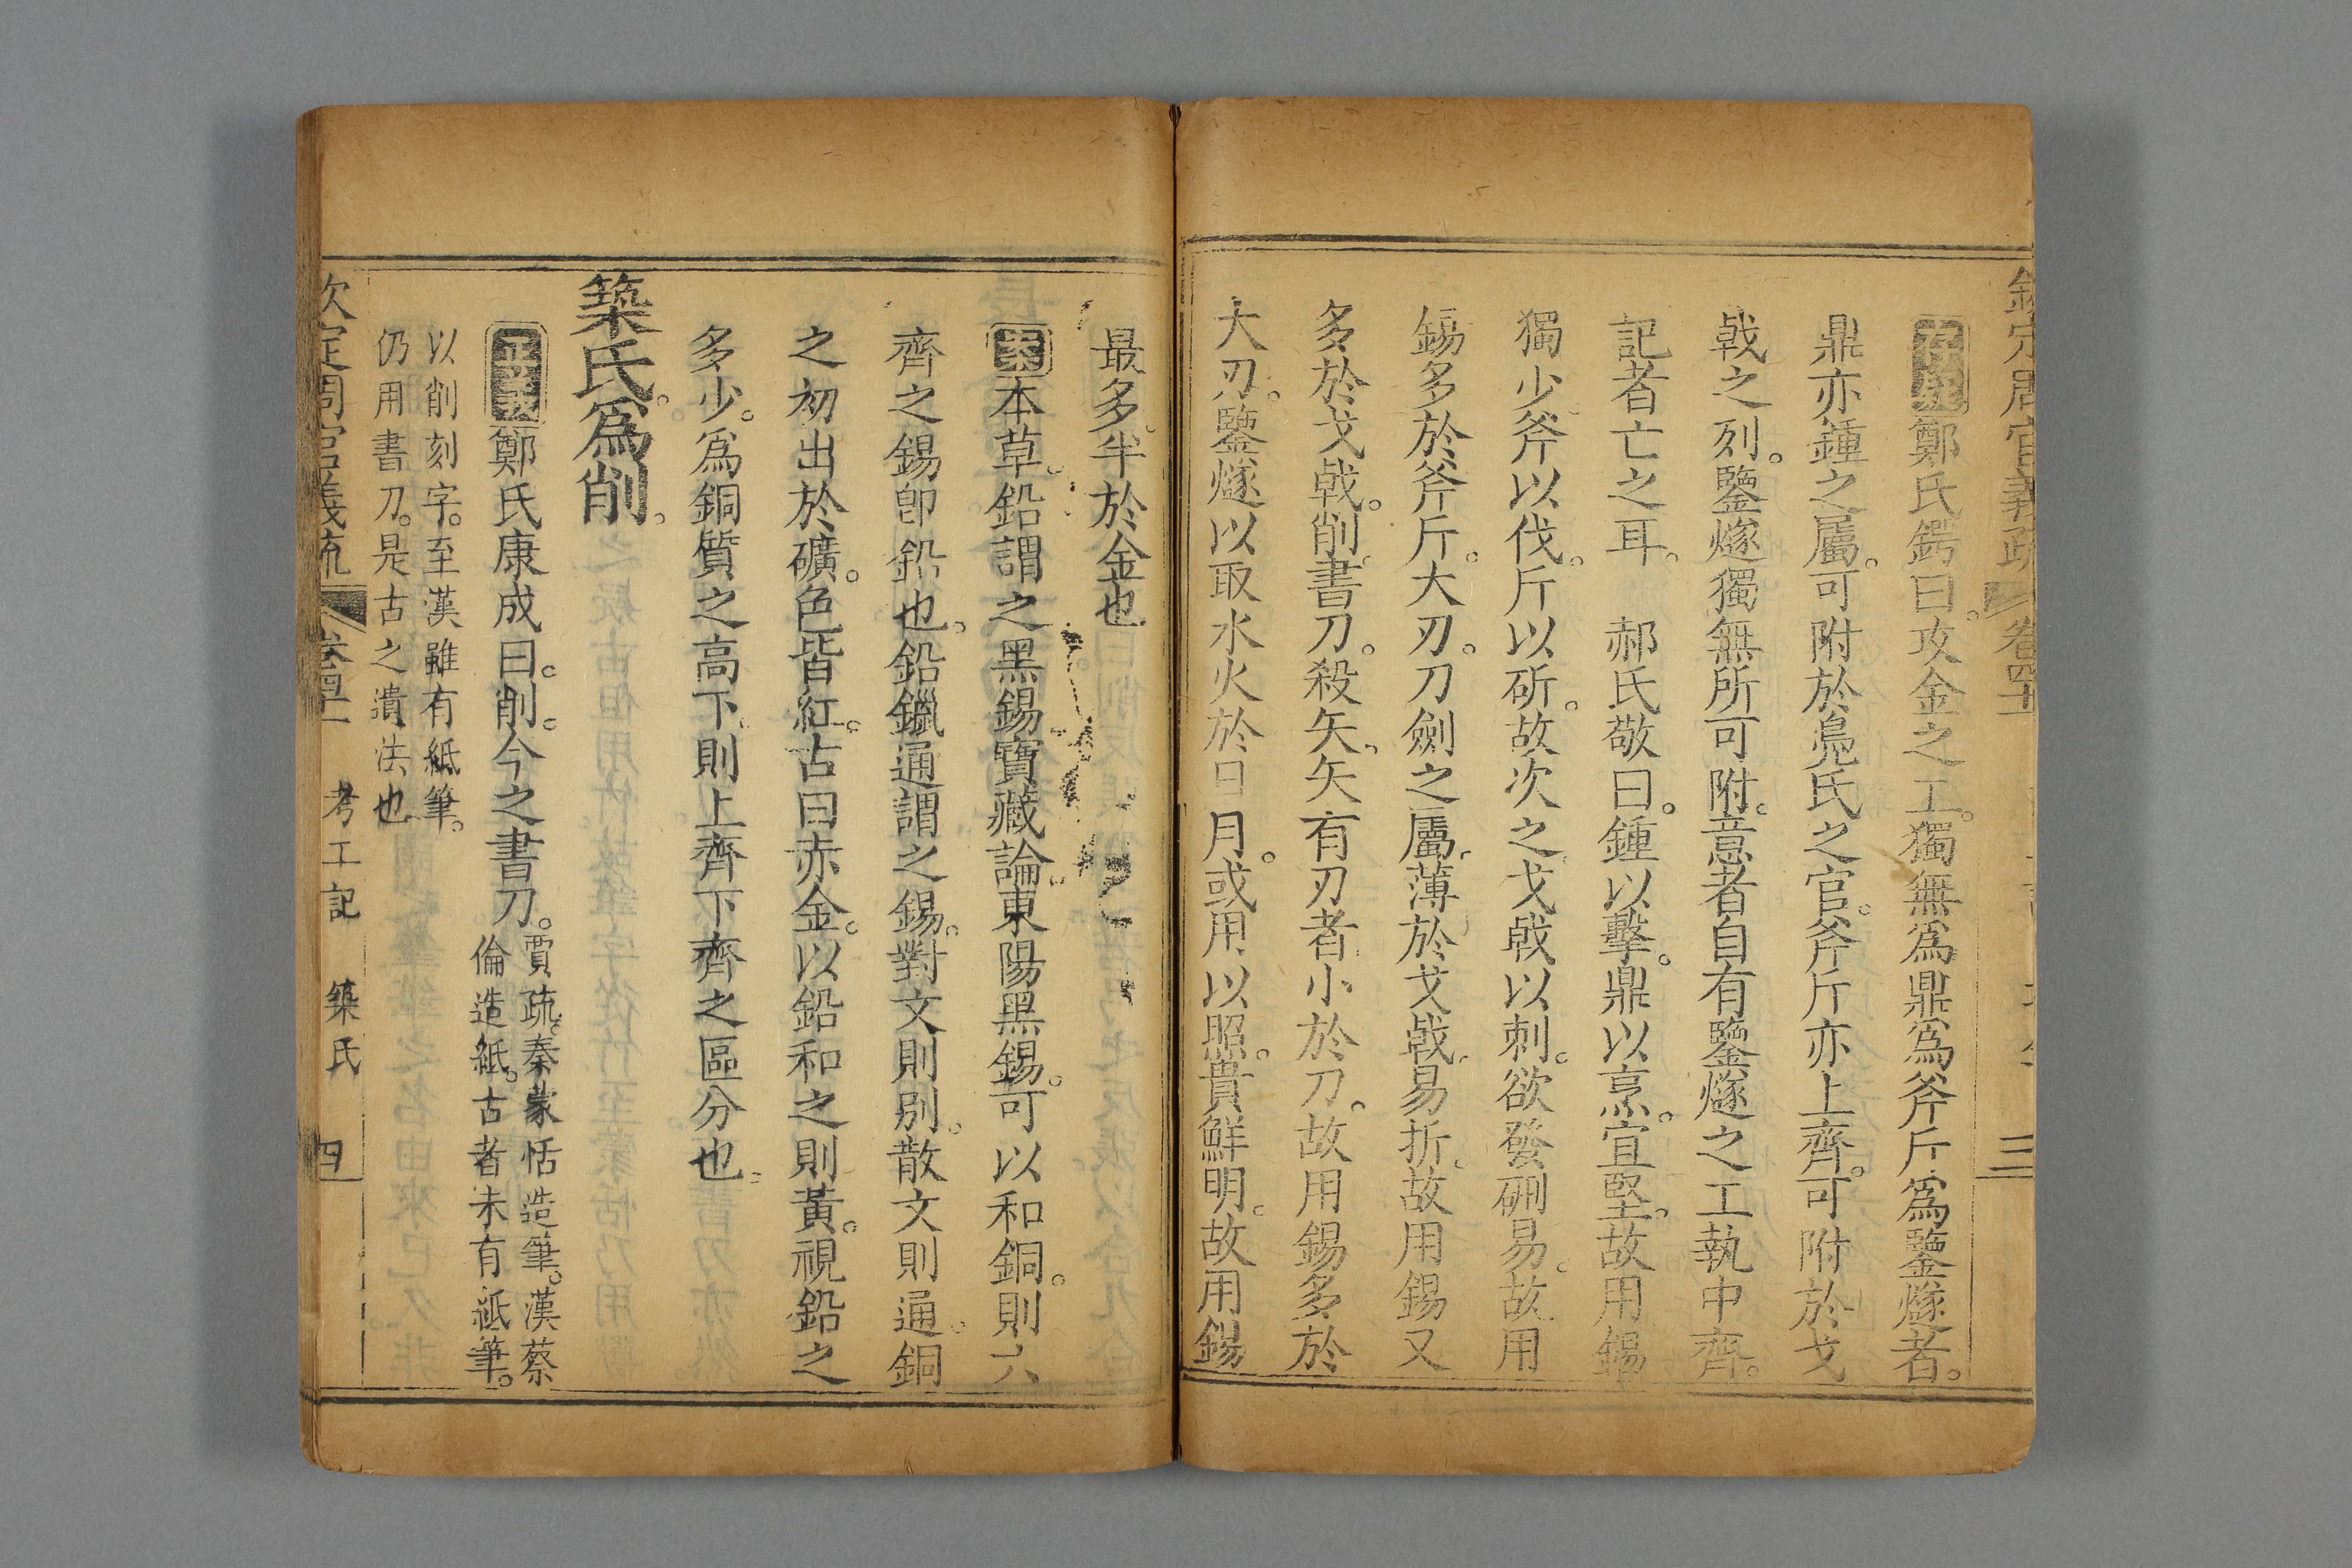 欽定周官義疏 卷四十一 三
存疑鄭氏鍔曰。攻金之工。獨無爲鼎爲斧斤爲鑒燧者。
鼎亦鍾之屬。可附於鳧氏之官。斧斤亦上齊。可附於戈
戟之列。鑒燧獨無所可附。意者自有鑒燧之工執中齊。
記者亡之耳。 郝氏敬曰。鍾以擊。鼎以烹。宜堅。故用錫
獨少。斧以伐。斤以斫。故次之。戈戟以刺。欲發硎易。故用
錫多於斧斤。大刃。刀劍之屬。薄於戈戟。易折。故用錫又
多於戈戟。削。書刀。殺矢。矢有刃者小於刀。故用錫多於
大刃。鑒燧以取水火於日月。或用以照。貴鮮明。故用錫
最多。半於金也
案本草。鉛謂之黑錫。寶藏論。東陽黑錫。可以和銅。則六
齊之錫卽鉛也。鉛鑞通謂之錫。對文則別。散文則通。銅
之初出於礦。色皆紅。古曰赤金。以鉛和之則黃。視鉛之
多少。爲銅質之高下。則上齊下齊之區分也。
築氏。爲削。
正義鄭氏康成曰。削。今之書刀。
賈疏。秦蒙恬造筆。漢蔡
倫造紙。古者未有紙筆。
以削刻字。至漢雖有紙筆。
仍用書刀。是古之遺法也
欽定周官義疏 卷四十一 考工記 築氏 四